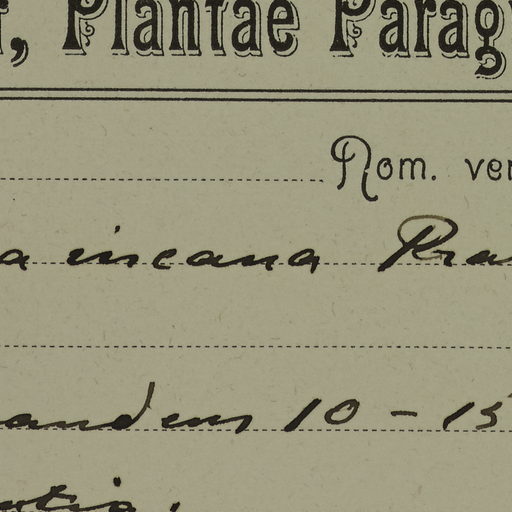 r, Plantae Parag
Nom. ver
a incana Kra
andens 10 - 15